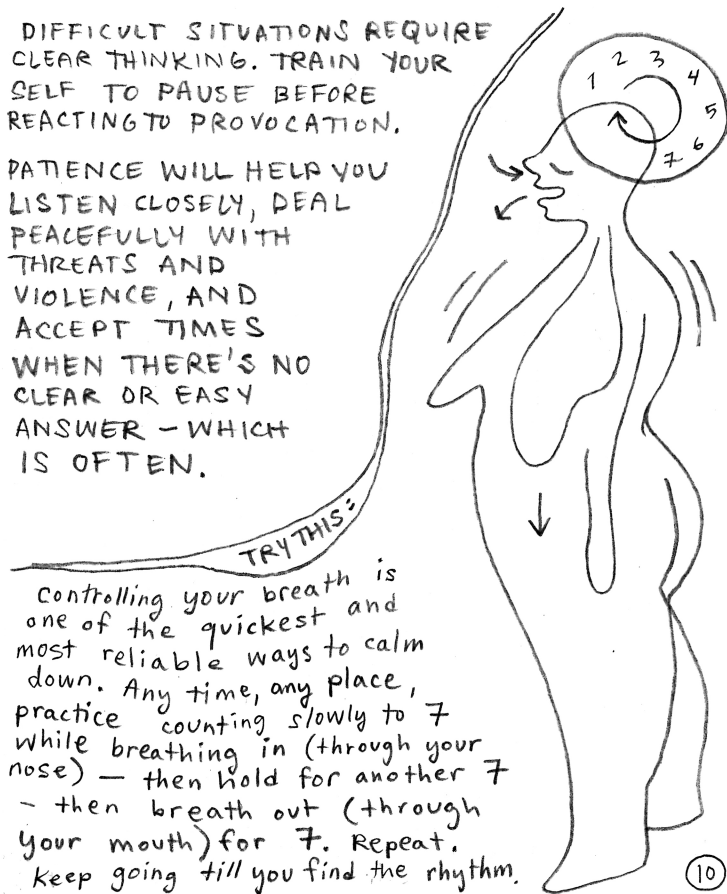 DIFFICULT SITUATIONS REQUIRE
CLEAR THINKING. TRAIN YOUR
SELF TO PAUSE BEFORE
REACTING TO PROVOCATION.
PATIENCE WILL HELP YOU
LISTEN CLOSELY, DEAL
PEACEFULLY WITH
THREATS AND
VIOLENCE, AND
ACCEPT TIMES
WHEN THERE'S NO
CLEAR OR EASY
ANSWER – WHICH
IS OFTEN.
1 2 3 4 5 6 7
TRY THIS:
Controlling your breath is
one of the quickest and
most reliable ways to calm
down. Any time, any place,
practice counting slowly to 7
while breathing in (through your
nose) – then hold for another 7
– then breath out (through
your mouth) for 7. Repeat.
Keep going till you find the rhythm.
10